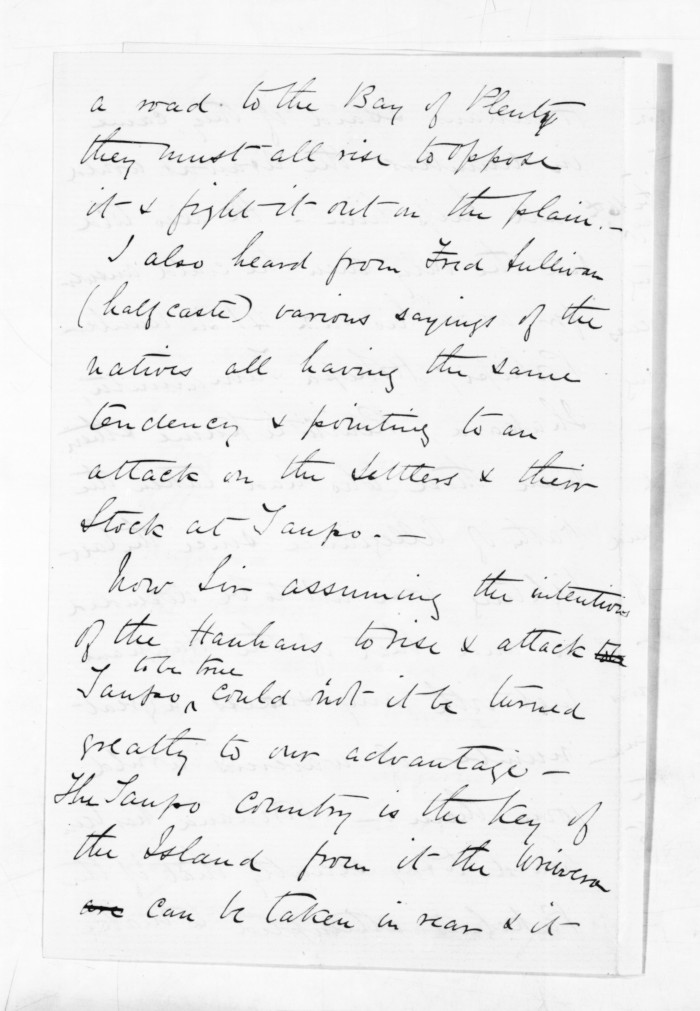 a road to the Bay of Plenty
they must all rise to oppose
it & fight it out on the plain. -
I also heard from Fred Sullivan
(half caste) various sayings of the
natives all having the same
tendency & pointing to an
attack on the Settlers & their
Stock at Taupo. -
Now Sir assuming the intentions
of the Hauhaus to rise & attack
to be true
Taupo, could not it be turned
greatly to our advantage -
The Taupo country is the Key of
the Island from it the Uriwera
are can be taken in rear & it